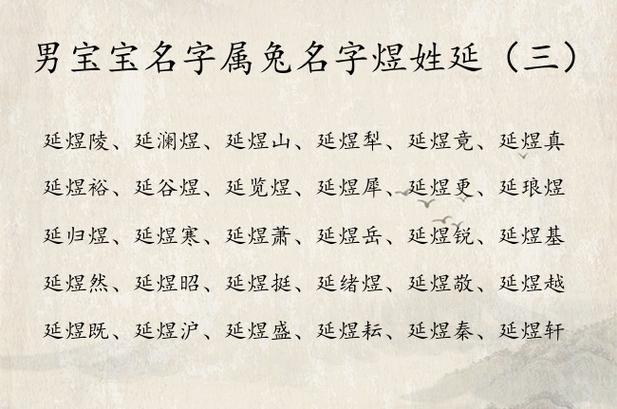 男宝宝名字属兔名字煜姓延（三）
延煜陵、延澜煜、延煜山、延煜犁、延煜竟、延煜真
延煜裕、延谷煜、延览煜、延煜犀、延煜更、延琅煜
延归煜、延煜寒、延煜萧、延煜岳、延煜锐、延煜基
延煜然、延煜昭、延煜挺、延绪煜、延煜敬、延煜越
延煜既、延煜沪、延煜盛、延煜耘、延煜秦、延煜轩